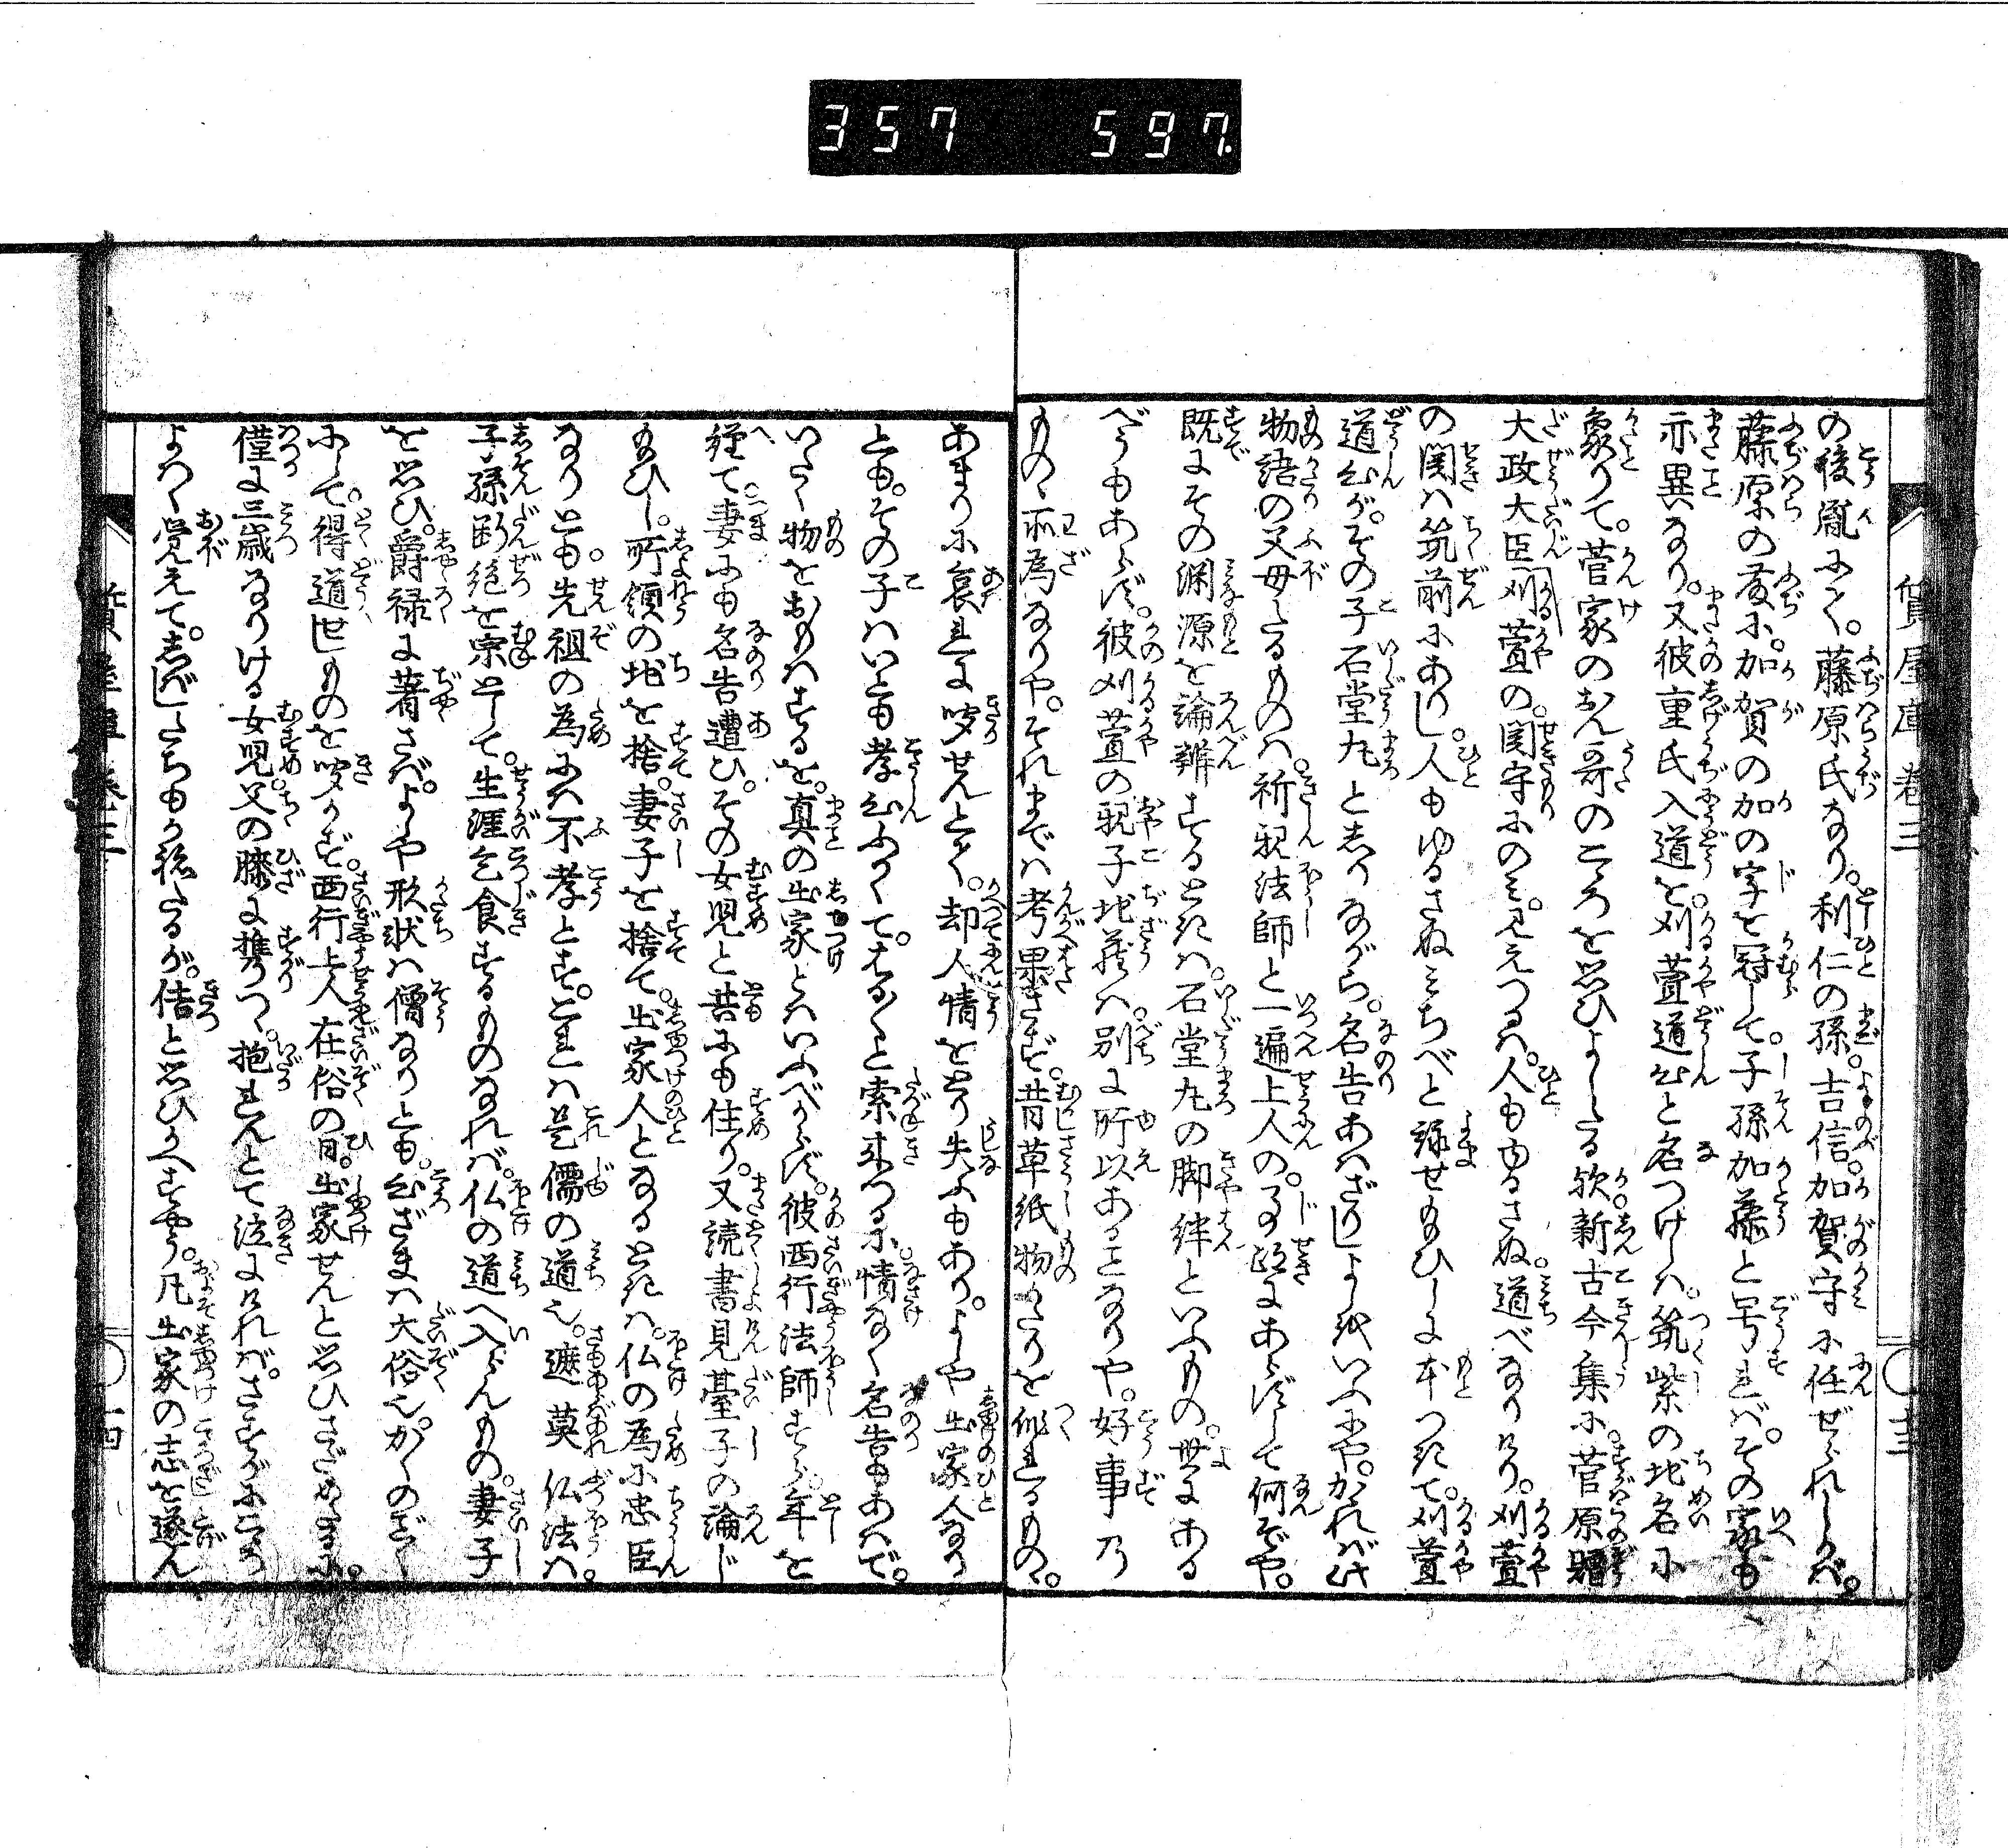 357 597.
質屋庫巻三
〇十三
の後胤にて。藤原氏なり。利仁の孫。吉信。加賀守に任ぜられしかば。
藤原の藤に。加賀の加の字を冠して。子孫加藤と号すれば。その家も
亦異なり。又彼重氏入道を。刈萱道心と名つけしは。筑紫の地名に
象りて。菅家のおん哥のこゝろを思ひよしたる歟。新古今集に。菅原贈
大政大臣刈萱の。関守にのみ。見えつるは。人もゆるさぬ。道べなりけり。刈萱
の関は筑前にありし。人もゆるさぬみちべと詠せ給ひしに本つきて。刈萱
道心が。その子石堂丸としりながら。名告あはざりしよしをいふにや。かゝれば此
物語の父母たるものは。祈親法師と一遍上人の。事跡にあらずして何ぞや。
既にその渕源を論辨するときは。石堂丸の脚絆といふもの。世にある
べうもあらず。彼刈萱の親子地蔵は。別に所以あることなりや。好事乃
ものゝ所為なりや。それまでは考果さず。昔草紙物かたりを作れるもの。
あまりに哀れに聞せんとて。却人情をとり失ふもあり。よしや出家人なり
とも。その子はいとも孝心ふかくて。はる〴〵と索来つるに。情なく名告もあはで。
いたく物をおもはするを。真の出家とはいふべからず。彼西行法師すら。年を
経て。妻にも名告遭ひ。その女児と共にも住り。又読書見臺子の論じ
給ひし。所領の地を捨。妻子を捨て。出家人となるときは。仏の為に忠臣
なりとも。先祖の為には不孝とす。これは是儒の道也。遮莫仏法は。
子孫断絶を宗として。生涯乞食するものなれば。仏の道へ入らんもの。妻子
を思ひ。爵禄に著さば。よしや形状は僧なりとも。心ざまは大俗也。かくのごとく
にして。得道せしものを聞かず。西行上人在俗の日。出家せんと思ひさだめしに。
僅に三歳なりける女児。父の膝に携りつゝ。抱れんとて泣にければ。さすがにこゝろ
よわく覚えて。しばしたちもかねたるが。佶と思ひかへすやう。凡出家の志を遂ん
質屋庫巻三
〇十四